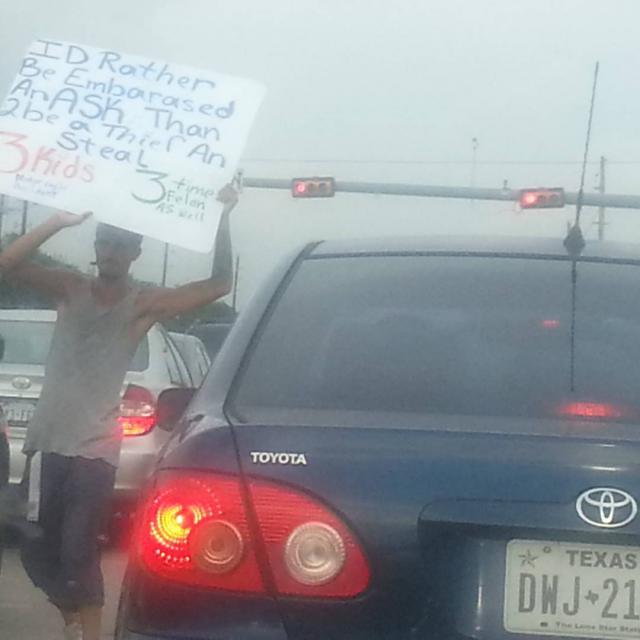 ID Rather
Be Embarased
An ASK Than
2 be a Thief An
Steal
3 Kids
3 time
Felon
AS well
TOYOTA
TEXAS
DWJ 21
The Lone Star Stat